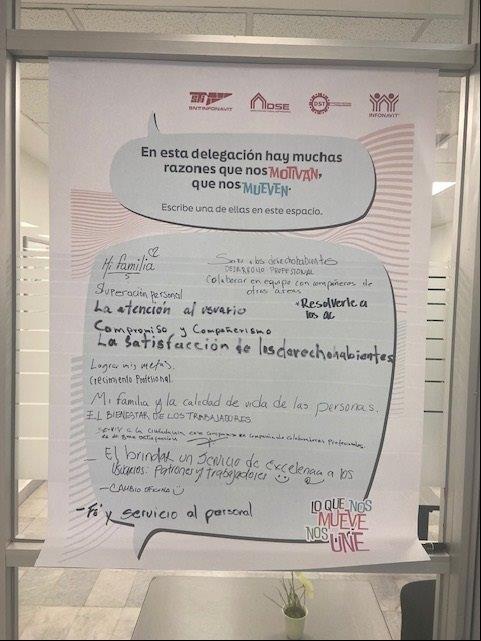 SNTINFONAVIT
DSE
DST
INFONAVIT
En esta delegación hay muchas
razones que nos MOTIVAN,
que nos MUEVEN.
Escribe una de ellas en este espacio.
Mi familia
a los derechohabientes
DESARROLLO PROFESIONAL
Colaborar en equipo con compañeros de
otras áreas
Superación personal
Resolverle a
los ac
La atención al usuario
Compromiso y Compañerismo
La satisfacción de los derechohabientes
Lograr mis metas.
Crecimiento Profesional.
Mi familia y la calidad de vida de las personas.
EL BIENESTAR DE LOS TRABAJADORES
Servir a la ciudadanía
El brindar un servicio de excelencia a los
usuarios: Patrones y trabajadores
- CAMBIO OFICINA
- Fé y servicio al personal
LO QUE NOS
MUEVE
NOS UNE